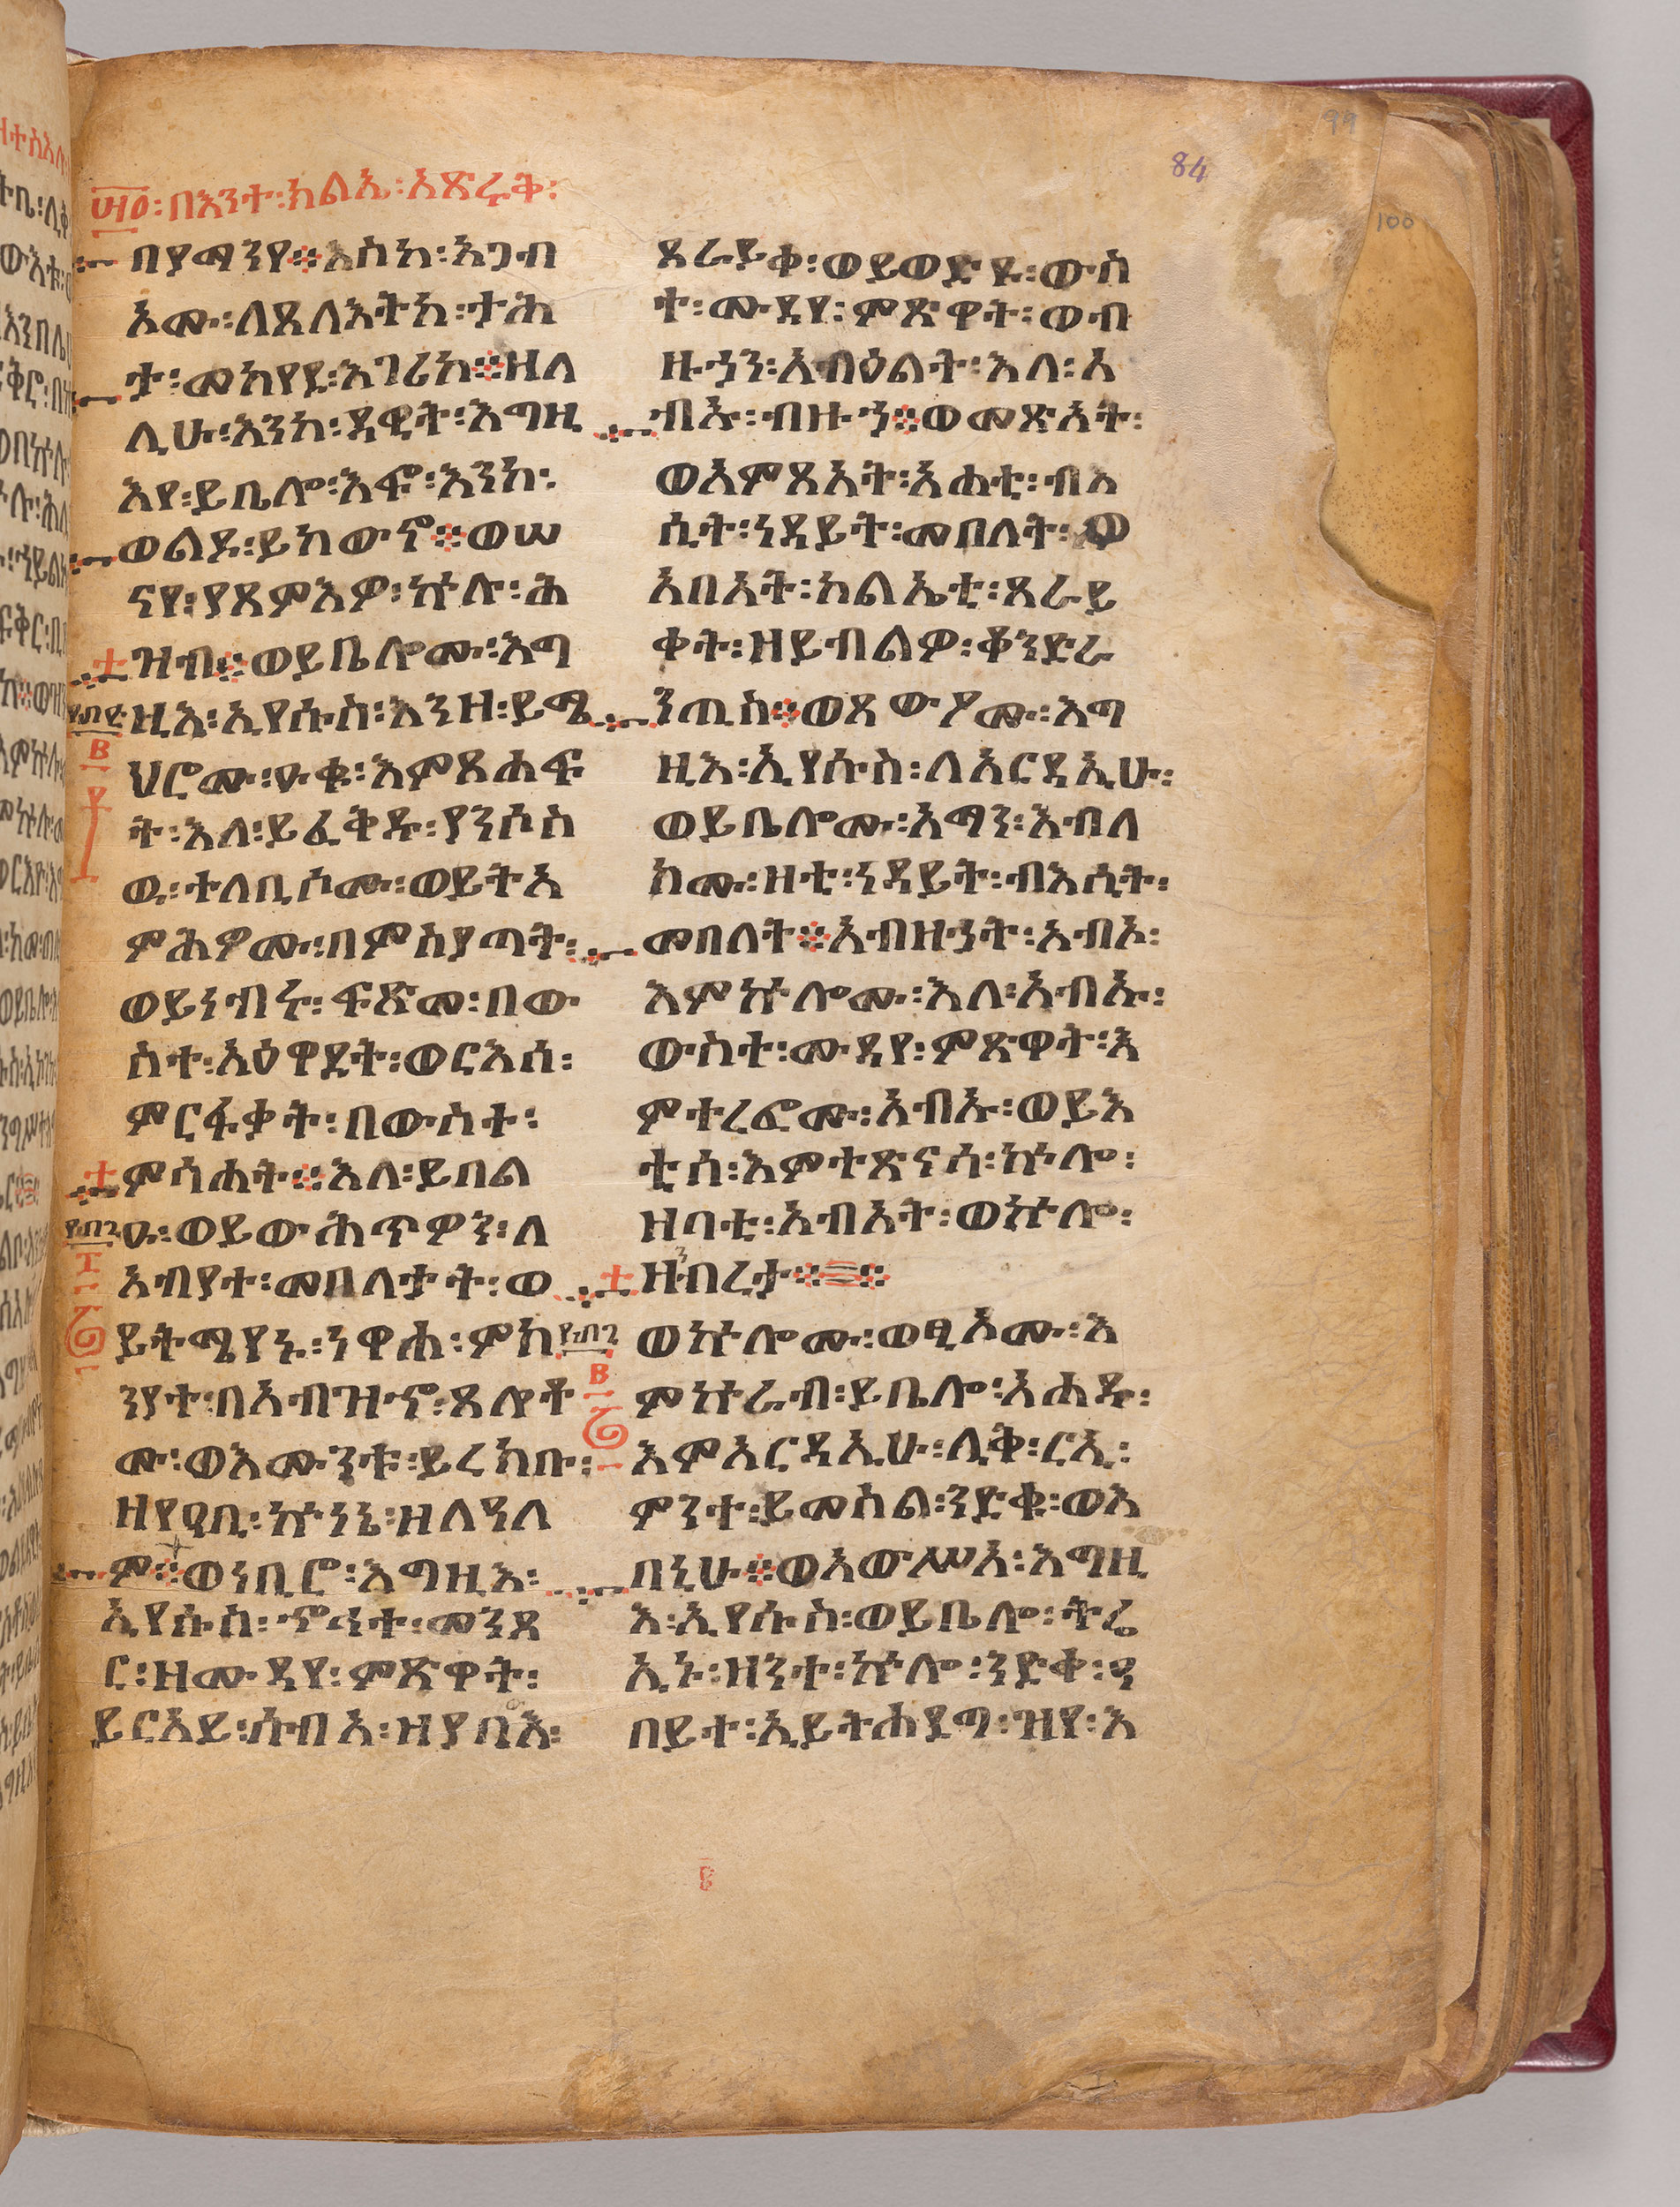 ፵፬ : በእንተ : ክልኤ : እጽሩቅ :
በየማንየ ። እስከ : አገብ
እሙ : ለጸላእትከ : ታሕ
ተ : መከየደ : እገሪከ ። ዘለ
ሊሁ : እንከ : ዳዊት : እግዚ
እየ : ይቤሎ : እፎ : እንከ :
ወልዶ : ይከውኖ ። ወሠ
ናየ : ያጸምእዎ : ኵሉ : ሕ
ዝብ ። ወይቤሎሙ : እግ
ዚእ : ኢየሱስ : እንዘ : ይሜ
ህሮሙ : ዑቁ : እምጸሐፍ
ት : እለ : ይፈቅዱ : ያንሶስ
ዉ : ተለቢሶሙ : ወይትአ
ምሕዎሙ : በምስያጣት :
ወይነብሩ : ፍጽመ : በው
ስተ : አዕዋደት : ወርእሰ :
ምርፋቃት : በውስተ :
ምሳሐት ። እለ : ይበል
ዑ : ወይውሕጥዎን : ለ
አብያተ : መበለታት : ወ
ይትሜየኑ : ንዋሐ : ምክ
ንያተ : በአብዝኆ : ጸሎቶ
ሙ : ወእሙንቱ : ይረክቡ :
ዘየዐቢ : ኵነኔ : ዘለዓለ
ም ። ወነቢሮ : እግዚእ :
ኢየሱስ : ቅድተ : መንጸ
ር : ዘሙዳየ : ምጽዋት :
ይርአይ : ሰብአ : ዘያበእ :
ጸራይቀ : ወይወድዩ : ውስ
ተ : ሙዳየ : ምጽዋት : ወብ
ዙኃን : አብዕልት : እለ : አ
ብኡ : ብዙኃ ። ወመጽአት :
ወእምጸአት : አሐቲ : ብእ
ሲት : ነዳይት : መበለት : ወ
አበአት : ክልኤቲ : ጸራይ
ቀት : ዘይብልዎ : ቆንድራ
ንጢስ ። ወጸውዖሙ : እግ
ዚእ : ኢየሱስ : ለአርዳኢሁ :
ወይቤሎሙ : አማን : እብለ
ክሙ : ዘቲ : ነዳይት : ብእሲት :
መበለት ። አብዘኃት : አብኦ :
እምኵሎሙ : እለ : አብኡ :
ውስተ : ሙዳየ : ምጽዋት : እ
ምተረፎሙ : አብኡ : ወይእ
ቲሰ : እምተጽናሳ : ኵሎ :
ዘባቲ : አብአት : ወኵሎ :
ዘንብረታ ።
ወኵሎሙ : ወፂኦሙ : እ
ምኵራብ : ይቤሎ : አሐዱ :
እምአርዳኢሁ : ሊቅ : ርኢ :
ምንተ : ይመስል : ንድቁ : ወእ
በኒሁ ። ወአውሥአ : እግዚ
እ : ኢየሱስ : ወይቤሎ : ትሬ
ኢኑ : ዘንተ : ኵሎ : ንድቀ : ዓ
በይተ : ኢይትሐደግ : ዝየ : እ
84
99
100